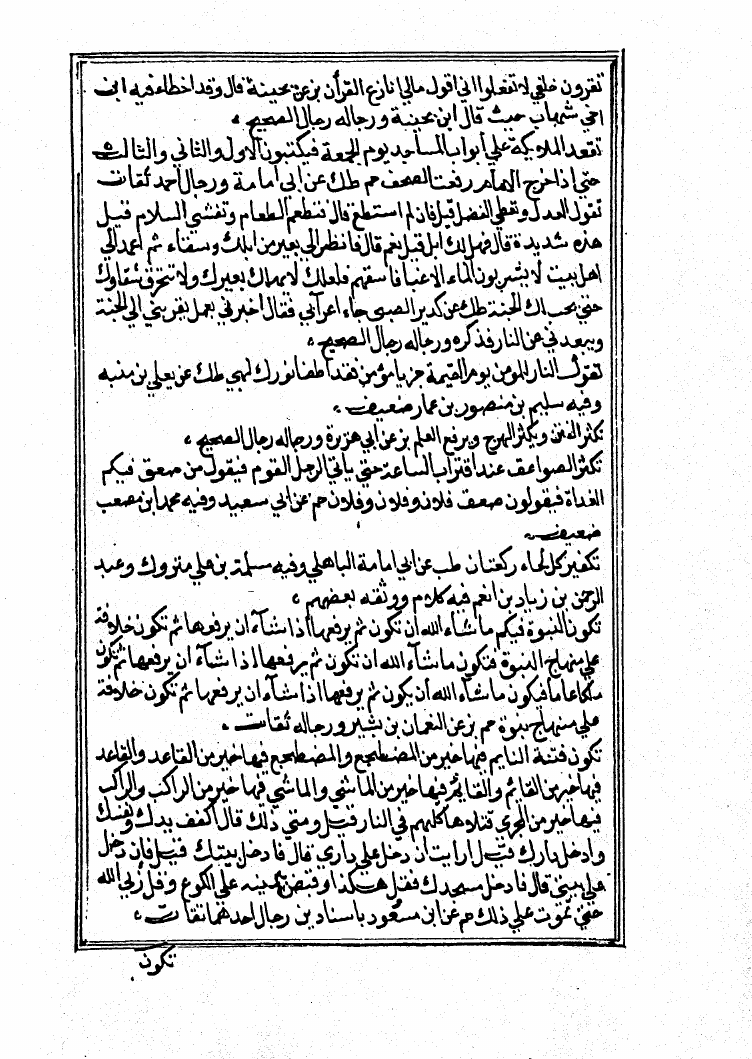 تقرؤن خلفي لا تفعلوا اني اقول مالي انازع القرآن بز عن بحينة قال وقد اخطاء فيه ابن
اخي شهاب حيث قال ابن بحينة ورجاله رجال الصحيح ،
تقعد الملايكة علي أبواب المساجد يوم الجمعة فيكتبون الاول والثاني والثالث
حتي اذا خرج الامام رفعت الصحف حم طك عن ابي امامة ورجال احمد ثقات
تقول العدل وتعطي الفضل قيل فان لم استطع قال فتطعم الطعام وتفشي السلام قيل
هذه شديدة قال فهل لك ابل قيل نعم قال فانظر الي بعير من ابلك وسقاء ثم اعمد الي
اهل بيت لا يشربون الماء الا غبا فاسقهم فلعلك لا يهلك بعيرك ولا تنخرق سقاوك
حتي يجب لك الجنة طك عن كدير الضبي جاء اعرابي فقال اخبرني بعمل يقربني الي الجنة
ويبعدني عن النار فذكره ورجاله رجال الصحيح ،
تقول النار للمومن يوم القيمة جز يا مؤمن فقد اطفا نورك لهبي طك عن يعلي بن منبه
وفيه سليم بن منصور بن عمار ضعيف ،
تكثر الفتن ويكثر الهرج ويرفع العلم بز عن ابي هريرة ورجاله رجال الصحيح ،
تكثر الصواعق عند اقتراب الساعة حتي ياتي الرجل القوم فيقول من صعق فيكم
الغداة فيقولون صعق فلان وفلان وفلان حم عن ابي سعيد وفيه محمد ابن مصعب
ضعيف ،
تكفير كل لحاء ركعتان طب عن ابي امامة الباهلي وفيه مسلمة بن علي متروك وعبد
الرحمن بن زياد بن انعم فيه كلام ووثقه بعضهم ،
تكون النبوة فيكم ما شاء الله أن تكون ثم يرفعها اذا شاء ان يرفعها ثم تكون خلافة
علي منهاج النبوة فتكون ما شاء الله ان تكون ثم يرفعها اذا شاء ان يرفعها ثم تكون
ملكا عاضا فيكون ما شاء الله أن يكون ثم يرفعها اذا شاء ان يرفعها ثم تكون خلافة
علي منهاج نبوة حم بز عن النعمان بن بشير ورجاله ثقات ،
تكون فتنة النايم فيها خير من المضطجع والمضطجع فيها خير من القاعد والقاعد
فيها خير من القائم والقائم فيها خير من الماشي والماشي فيها خير من الراكب والراكب
فيها خير من المجري قتلاها كلهم في النار قيل ومتي ذلك قال اكفف يدك ونفسك
وادخل دارك قيل ارايت ان دخل علي داري قال فادخل بيتك قيل فإن دخل
علي بيتي قال فادخل مسجدك فقل هكذا وقبض بيمينه علي الكوع وقل ربي الله
حتي تموت علي ذلك حم عن ابن مسعود باسنادين رجال احدهما ثقات ،
تكون